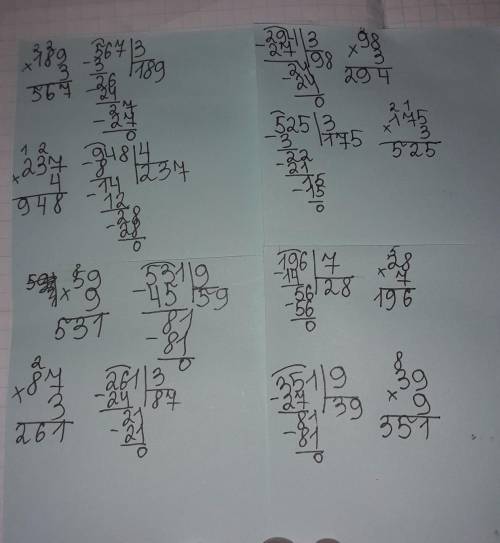 2 2
189
× 3
567
567 | 3
- 3 | 189
26
- 24
27
- 27
0
294 | 3
- 27 | 98
24
- 24
0
2
98
× 3
294
1 2
237
× 4
948
948 | 4
- 8 | 237
14
- 12
28
- 28
0
525 | 3
- 3 | 175
22
- 21
15
- 15
0
2 1
175
× 3
525
8
59
× 9
531
531 | 9
- 45 | 59
81
- 81
0
196 | 7
- 14 | 28
56
- 56
0
5
28
× 7
196
2
87
× 3
261
261 | 3
- 24 | 87
21
- 21
0
351 | 9
- 27 | 39
81
- 81
0
8
39
× 9
351